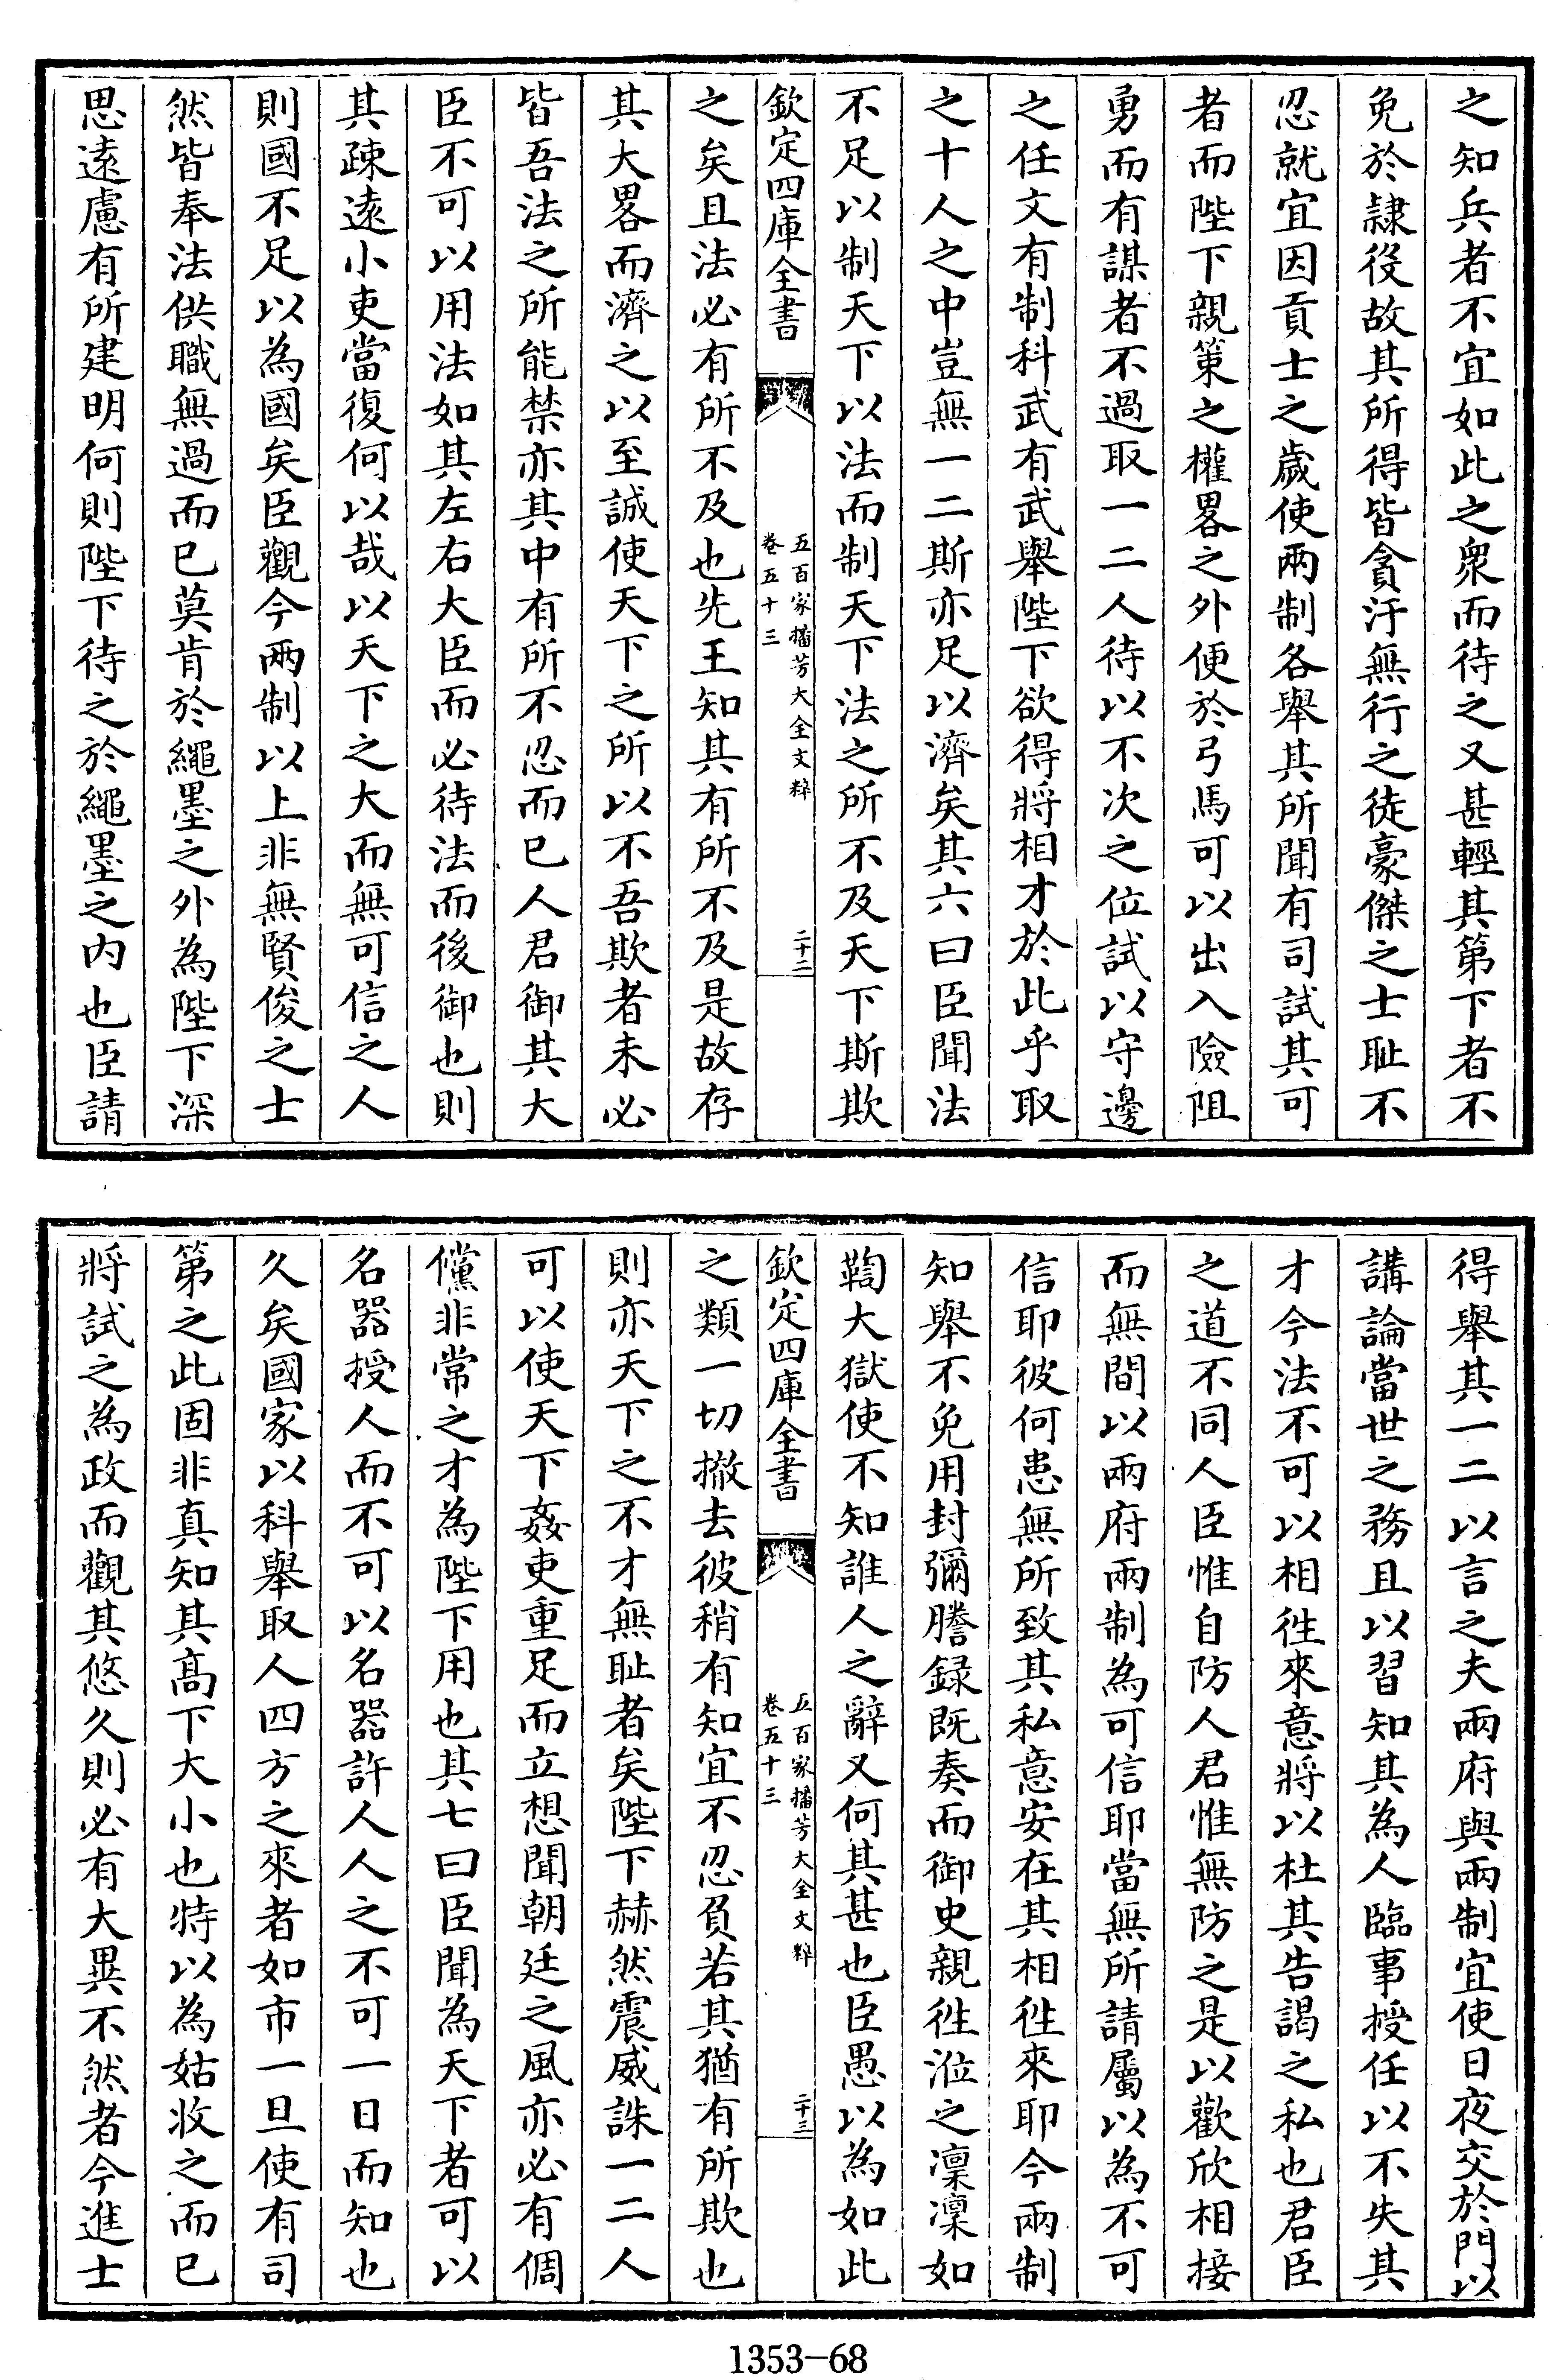 之知兵者不宜如此之衆而待之又甚輕其第下者不
免於隷役故其所得皆貪汙無行之徒豪傑之士耻不
忍就宜因貢士之歲使兩制各舉其所聞有司試其可
者而陛下親策之權畧之外便於弓馬可以出入險阻
勇而有謀者不過取一二人待以不次之位試以守邊
之任文有制科武有武舉陛下欲得將相才於此乎取
之十人之中豈無一二斯亦足以濟矣其六曰臣聞法
不足以制天下以法而制天下法之所不及天下斯欺
欽定四庫全書
五百家播芳大全文粹
卷五十三
二十二
之矣且法必有所不及也先王知其有所不及是故存
其大畧而濟之以至誠使天下之所以不吾欺者未必
皆吾法之所能禁亦其中有所不忍而已人君御其大
臣不可以用法如其左右大臣而必待法而後御也則
其疎遠小吏當復何以哉以天下之大而無可信之人
則國不足以為國矣臣觀今兩制以上非無賢俊之士
然皆奉法供職無過而已莫肯於繩墨之外為陛下深
思遠慮有所建明何則陛下待之於繩墨之内也臣請
得舉其一二以言之夫兩府與兩制宜使日夜交於門以
講論當世之務且以習知其為人臨事授任以不失其
才今法不可以相徃來意將以杜其告謁之私也君臣
之道不同人臣惟自防人君惟無防之是以歡欣相接
而無間以兩府兩制為可信耶當無所請屬以為不可
信耶彼何患無所致其私意安在其相徃來耶今兩制
知舉不免用封彌謄録既奏而御史親徃涖之凜凜如
鞫大獄使不知誰人之辭又何其甚也臣愚以為如此
欽定四庫全書
五百家播芳大全文粹
卷五十三
二十三
之類一切撤去彼稍有知宜不忍負若其猶有所欺也
則亦天下之不才無耻者矣陛下赫然震威誅一二人
可以使天下姦吏重足而立想聞朝廷之風亦必有倜
儻非常之才為陛下用也其七曰臣聞為天下者可以
名器授人而不可以名器許人人之不可一日而知也
久矣國家以科舉取人四方之來者如市一旦使有司
第之此固非真知其髙下大小也特以為姑收之而已
將試之為政而觀其悠久則必有大異不然者今進士
1353-68